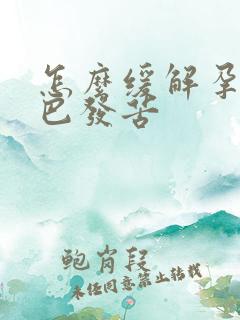 怎麼缓解孕
巴發苦
鲍肖段
未经同意禁止转载